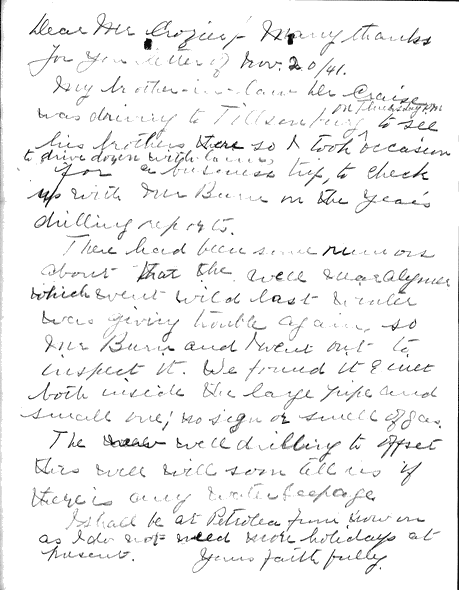 Dear Mr Crozier;- Many thanks
for your letter of Nov. 20/41.
My brother-in-law Mr Craise
on Thursday pm
was driving to Tillsonburg to see
his brothers there so I took occasion
to drive down with
for a business trip, to check
up with Mr Burn on the year's
drilling reports.
There had been some rumors
about that the well near Aylmer
which went wild last winter
was giving trouble again, so
Mr Burn and I went out to
inspect it. We found it
both inside the large pipe and
small one; no sign or smell of gas.
The new well drilling to offset
this well will soon tell us if
there is any water seepage
I shall be at Petrolea from now on
as I do not need more holidays at
present. Yours faithfully.